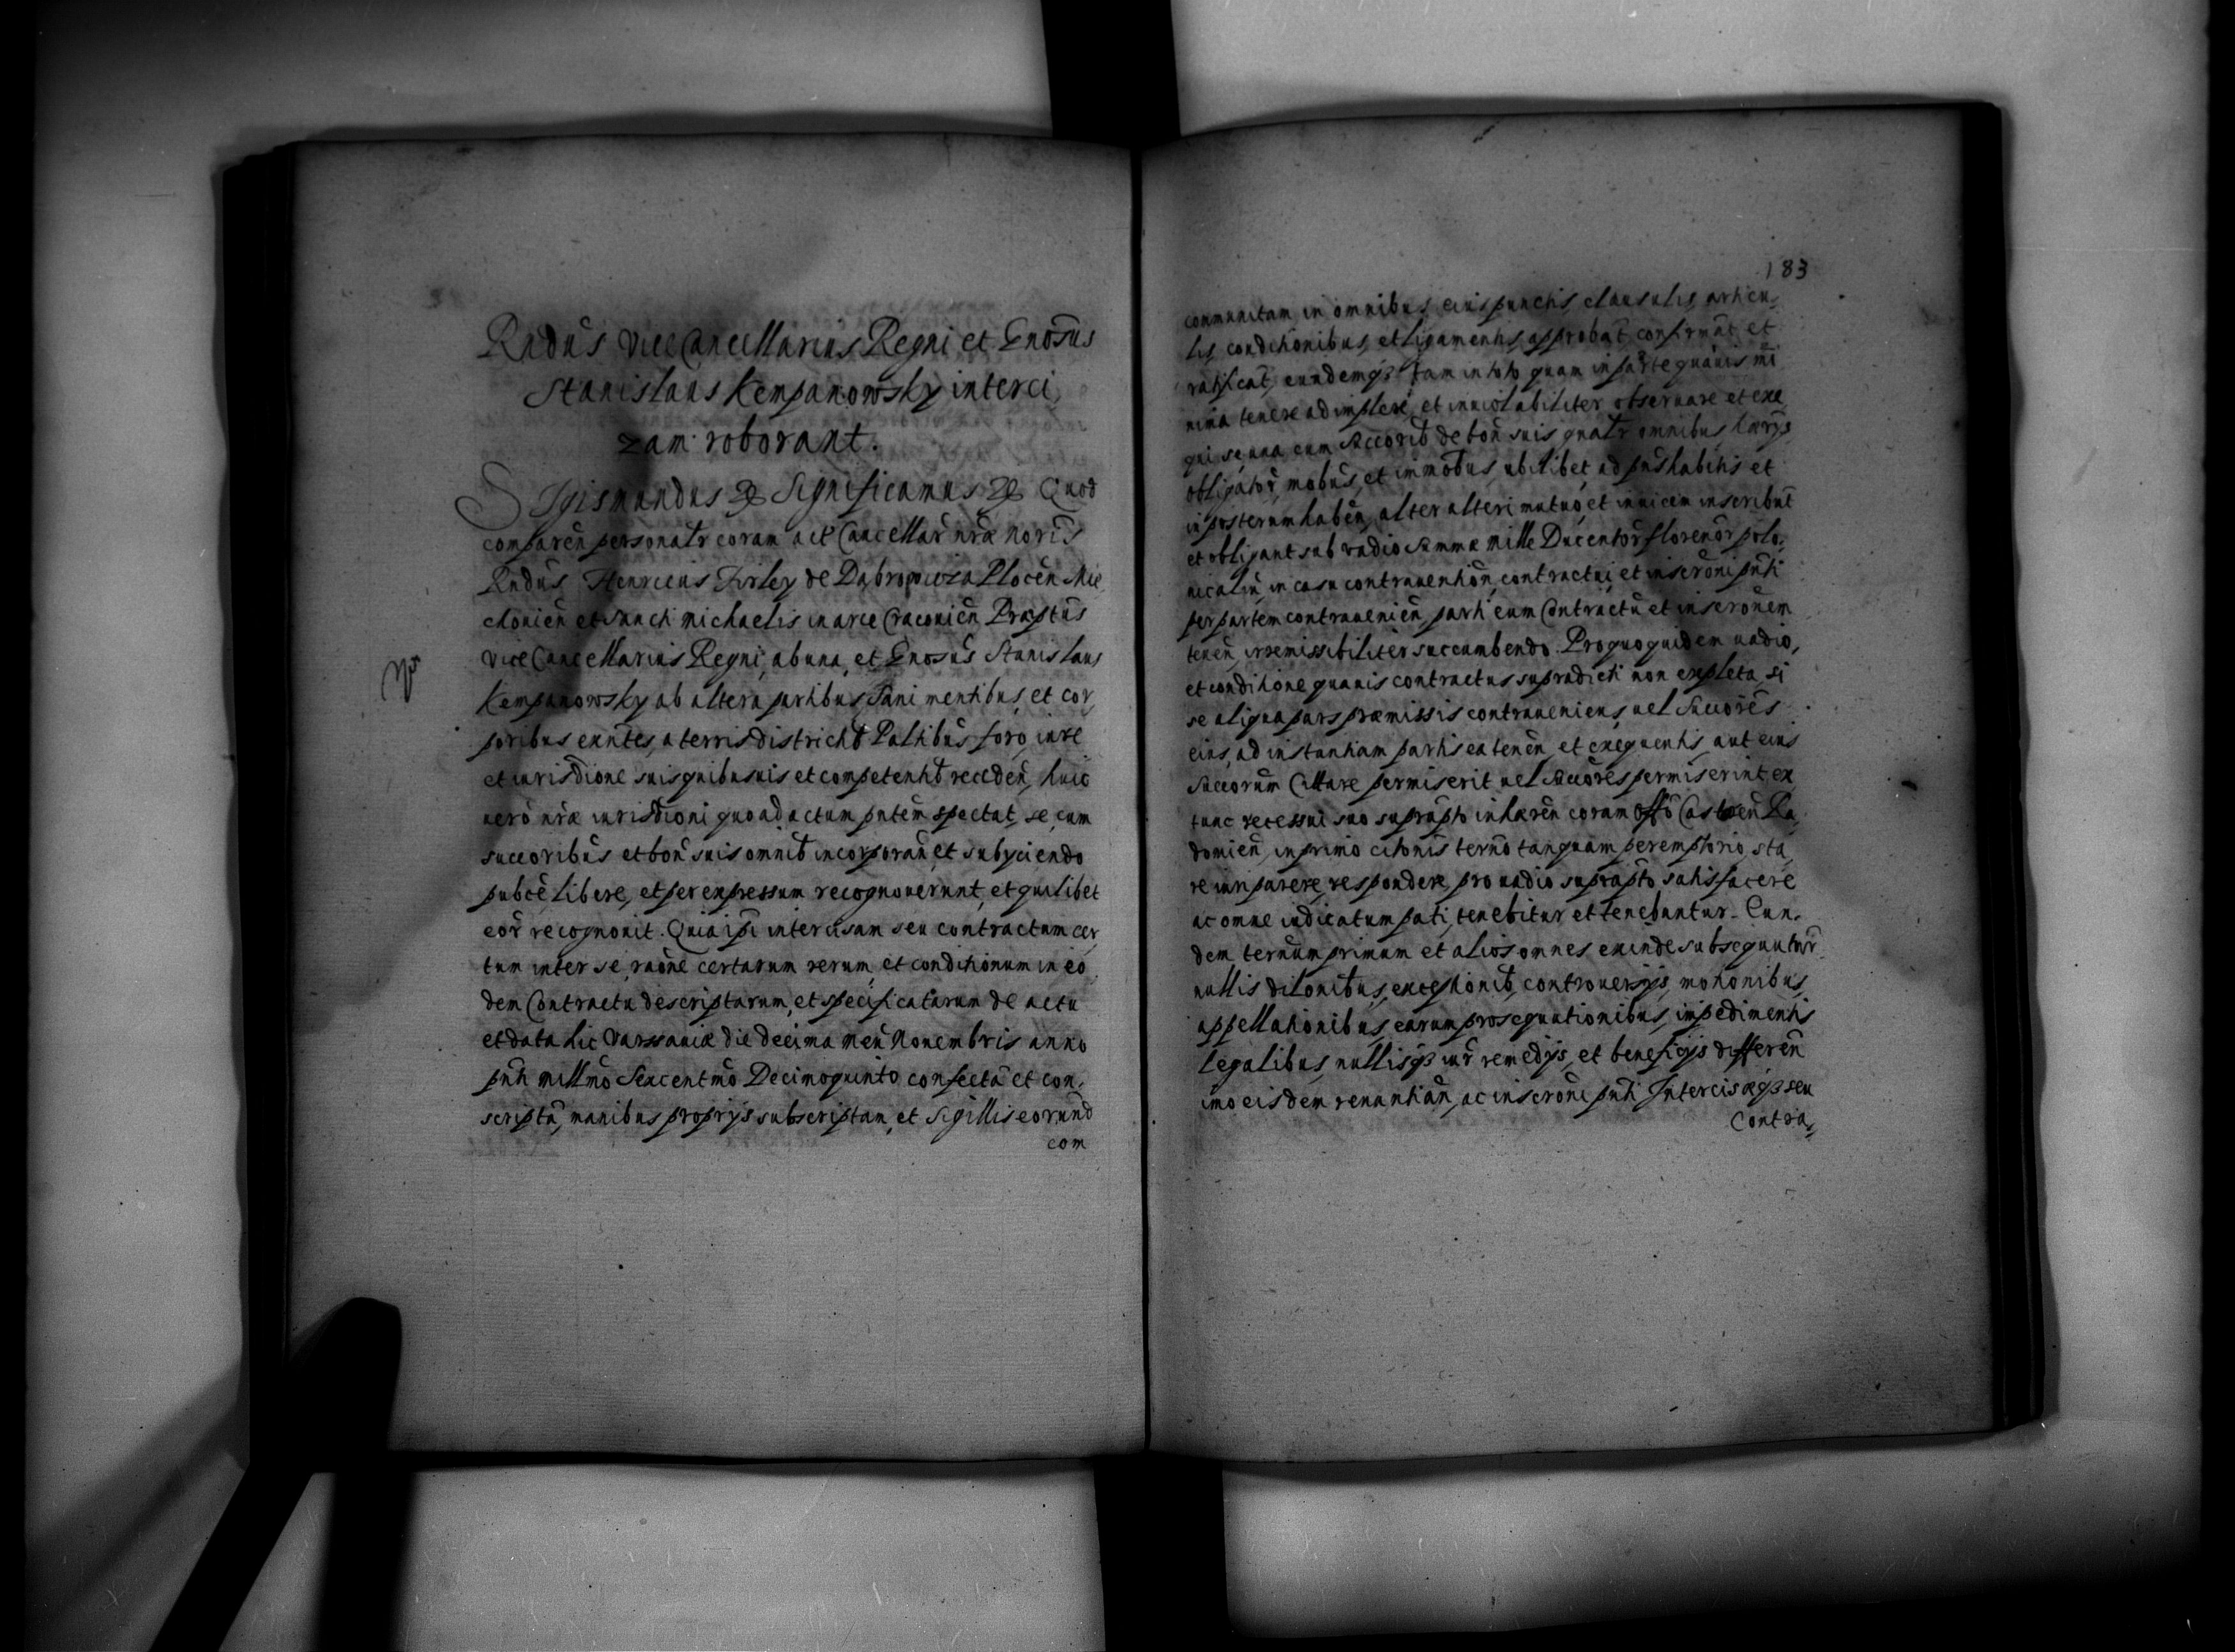 Rndūs ViceCancellarius Regni et Gnosūs
Stanislaus Kempanowsky interci,
zam roborant.
Sigismundus &c Significamus &c Quod
comparēn personalr coram act Cancellar nrā Noris
Rndūs Henricus Firley de Dąbrowicza Plocēn Mie,
chouiēn et Sancti Michaelis in arce Cracouiēn Præptūs
ViceCancellarius Regni, ab una, et Gnosūs Stanislaus
Kempanowsky ab altera partibus, Sani mentibus et cor,
poribus exn̄tes, a terris districtib Palatibūs foro, iure
et iurisdione suis quibusuis et competentib recedēn, huic
uerō nrā iurisdioni quoad actum pn̄tēm spectat, se, cum
succoribūs et bon suis omnib incorporān, et subyciendo
pubcē libere, et per expressum recognouerunt, et quilibet
eōr recognouit. Quia ipi intercisam seu contractum cer,
tum inter se, raōne certarum rerum, et conditionum in eo
dem Contractu descriptarum, et specificatarum de actu
et data hic Varssauiæ die decima men Nouembris anno
pn̄ti millmō Sexcentmō Decimoquinto confectā et con,
scriptā, manibus proprys subscriptam, et sigillis eorund
com
183
communitam in omnibus eius punctis, clausulis, articu,
lis, conditionibus, et ligamentis, approbat, confirmāt et
ratificat, eundemq3 tam in toto quam in parte quauis mi
nima tenere adimplere, et inuiolabiliter obseruare et exe
qui se una cum Succorib de bon suis gnalr omnibus hærys
obligator, mobūs, et immobūs, ubilibet, ad pn̄s habitis et
in posterum habēn, alter alteri mutuo, et inuicem inscribūt
et obligant sub vadio Summæ Mille Ducentor florenor polo,
nicaliū, in casu contrauentiōn, contractui, et inscrōni pn̄ti
per partem contrauenien, parti eum Contractū et inscrōnem
tenēn, irremissibiliter succumbendo. Pro quo quidem uadio,
et conditione quauis contractus supradicti non expleta, si
se aliqua pars præmissis contraueniens, uel Succorēs
eius, ad instantiam partis ea tenēn, et exequentis, aut eius
Succorūm Cittare permiserit uel Succorēs permiserint, ex
tunc recessui suo suprapto inhærēn coram offō Castrēn Ra,
domiēn, in primo citōnis terno tanquam peremptorio, sta,
re iuri parere, respondere, pro uadio suprapto satisfacere
ac omne iudicatum pati, tenebitur et tenebuntur. Eun,
dem ternum primum et alios omnes exinde subsequutur
nullis dilōnibus, exceptionib, controuersys, motionibus,
appellationibus, earum prosequutionibus, impedimentis
legalibus, nullisq3 iur remedys, et beneficys differēn
imo eisdem renuntiān, ac inscrōni pn̄ti Intercisæq3 seu
Contra,